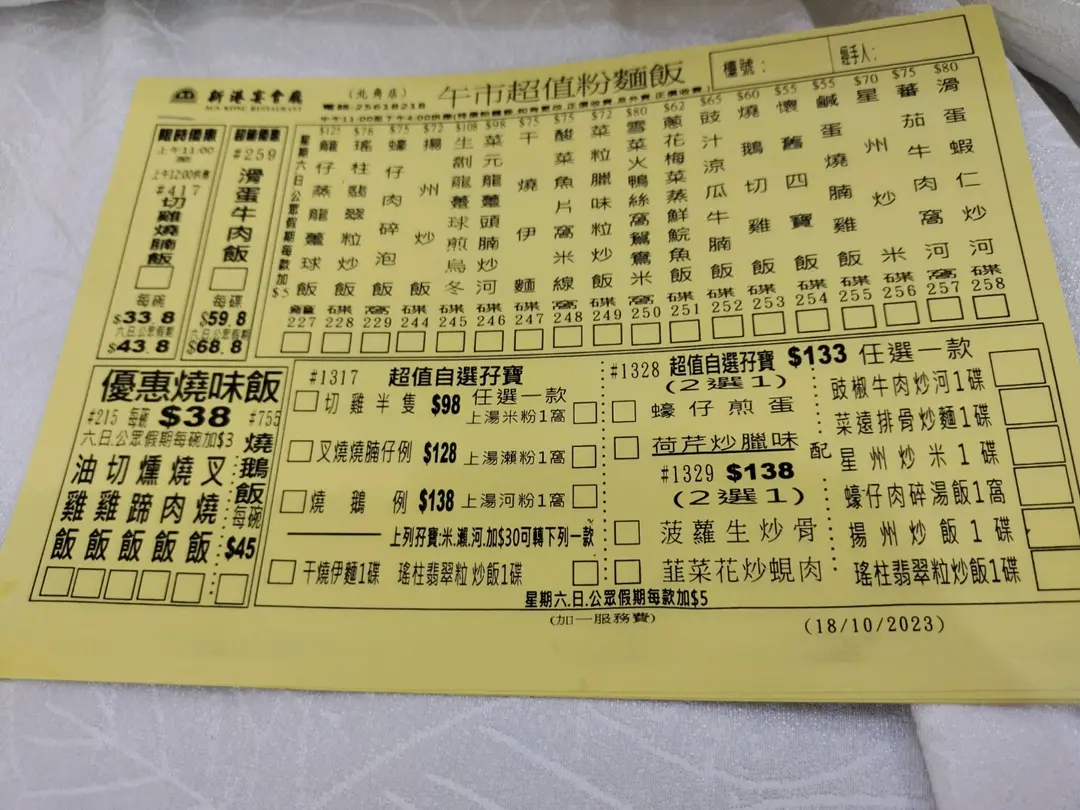 新港宴會廳
SUN KONG RESTAURANT
(北角店)
電話:25618218
午市超值粉麵飯
檯號:
經手人:
限時優惠
上午11:00
至
上午12:00供應
#417
切雞燒腩飯
每碗
$33.8
六.日.公眾假期
$43.8
超筍優惠
#259
滑蛋牛肉飯
每碟
$59.8
六.日.公眾假期
$68.8
星期六.日.公眾假期每款加$5
$125 籠仔蒸龍躉球飯 籠 227
$78 瑤柱翡翠粒炒飯 碟 228
$75 蠔仔肉碎泡飯 窩 229
$72 揚州炒飯 碟 244
$108 生劏龍躉球煎烏冬 碟 245
$98 菜元龍躉頭腩炒河 碟 246
$75 干燒伊麵 碟 247
$75 酸菜魚片窩米線 窩 248
$72 菜粒臘味粒炒飯 碟 249
$80 雪菜火鴨絲窩鴛鴦米 窩 250
$62 蔥花梅菜蒸鮮鯇魚飯 碟 251
$65 豉汁涼瓜牛腩飯 碟 252
$60 燒鵝切雞飯 碟 253
$55 懷舊四寶飯 碟 254
$55 鹹蛋燒腩雞飯 碟 255
$70 星州炒米 碟 256
$75 蕃茄牛肉窩河 窩 257
$80 滑蛋蝦仁炒河 碟 258
優惠燒味飯
#215 每碗 $38 #755
六.日.公眾假期每碗加$3
油雞飯
切雞飯
燻蹄飯
燒肉飯
叉燒飯
燒鵝飯每碗
$45
#1317 超值自選孖寶
切雞半隻 $98
叉燒燒腩仔例 $128
燒鵝例 $138
任選一款
上湯米粉1窩
上湯瀨粉1窩
上湯河粉1窩
上列孖寶:米.瀨.河.加$30可轉下列一款
干燒伊麵1碟 瑤柱翡翠粒炒飯1碟
#1328 超值自選孖寶 $133 任選一款
(2選1)
蠔仔煎蛋
荷芹炒臘味
#1329 $138
(2選1)
菠蘿生炒骨
韮菜花炒蜆肉
配
豉椒牛肉炒河1碟
菜遠排骨炒麵1碟
星州炒米1碟
蠔仔肉碎湯飯1窩
揚州炒飯1碟
瑤柱翡翠粒炒飯1碟
星期六.日.公眾假期每款加$5
(加一服務費)
(18/10/2023)